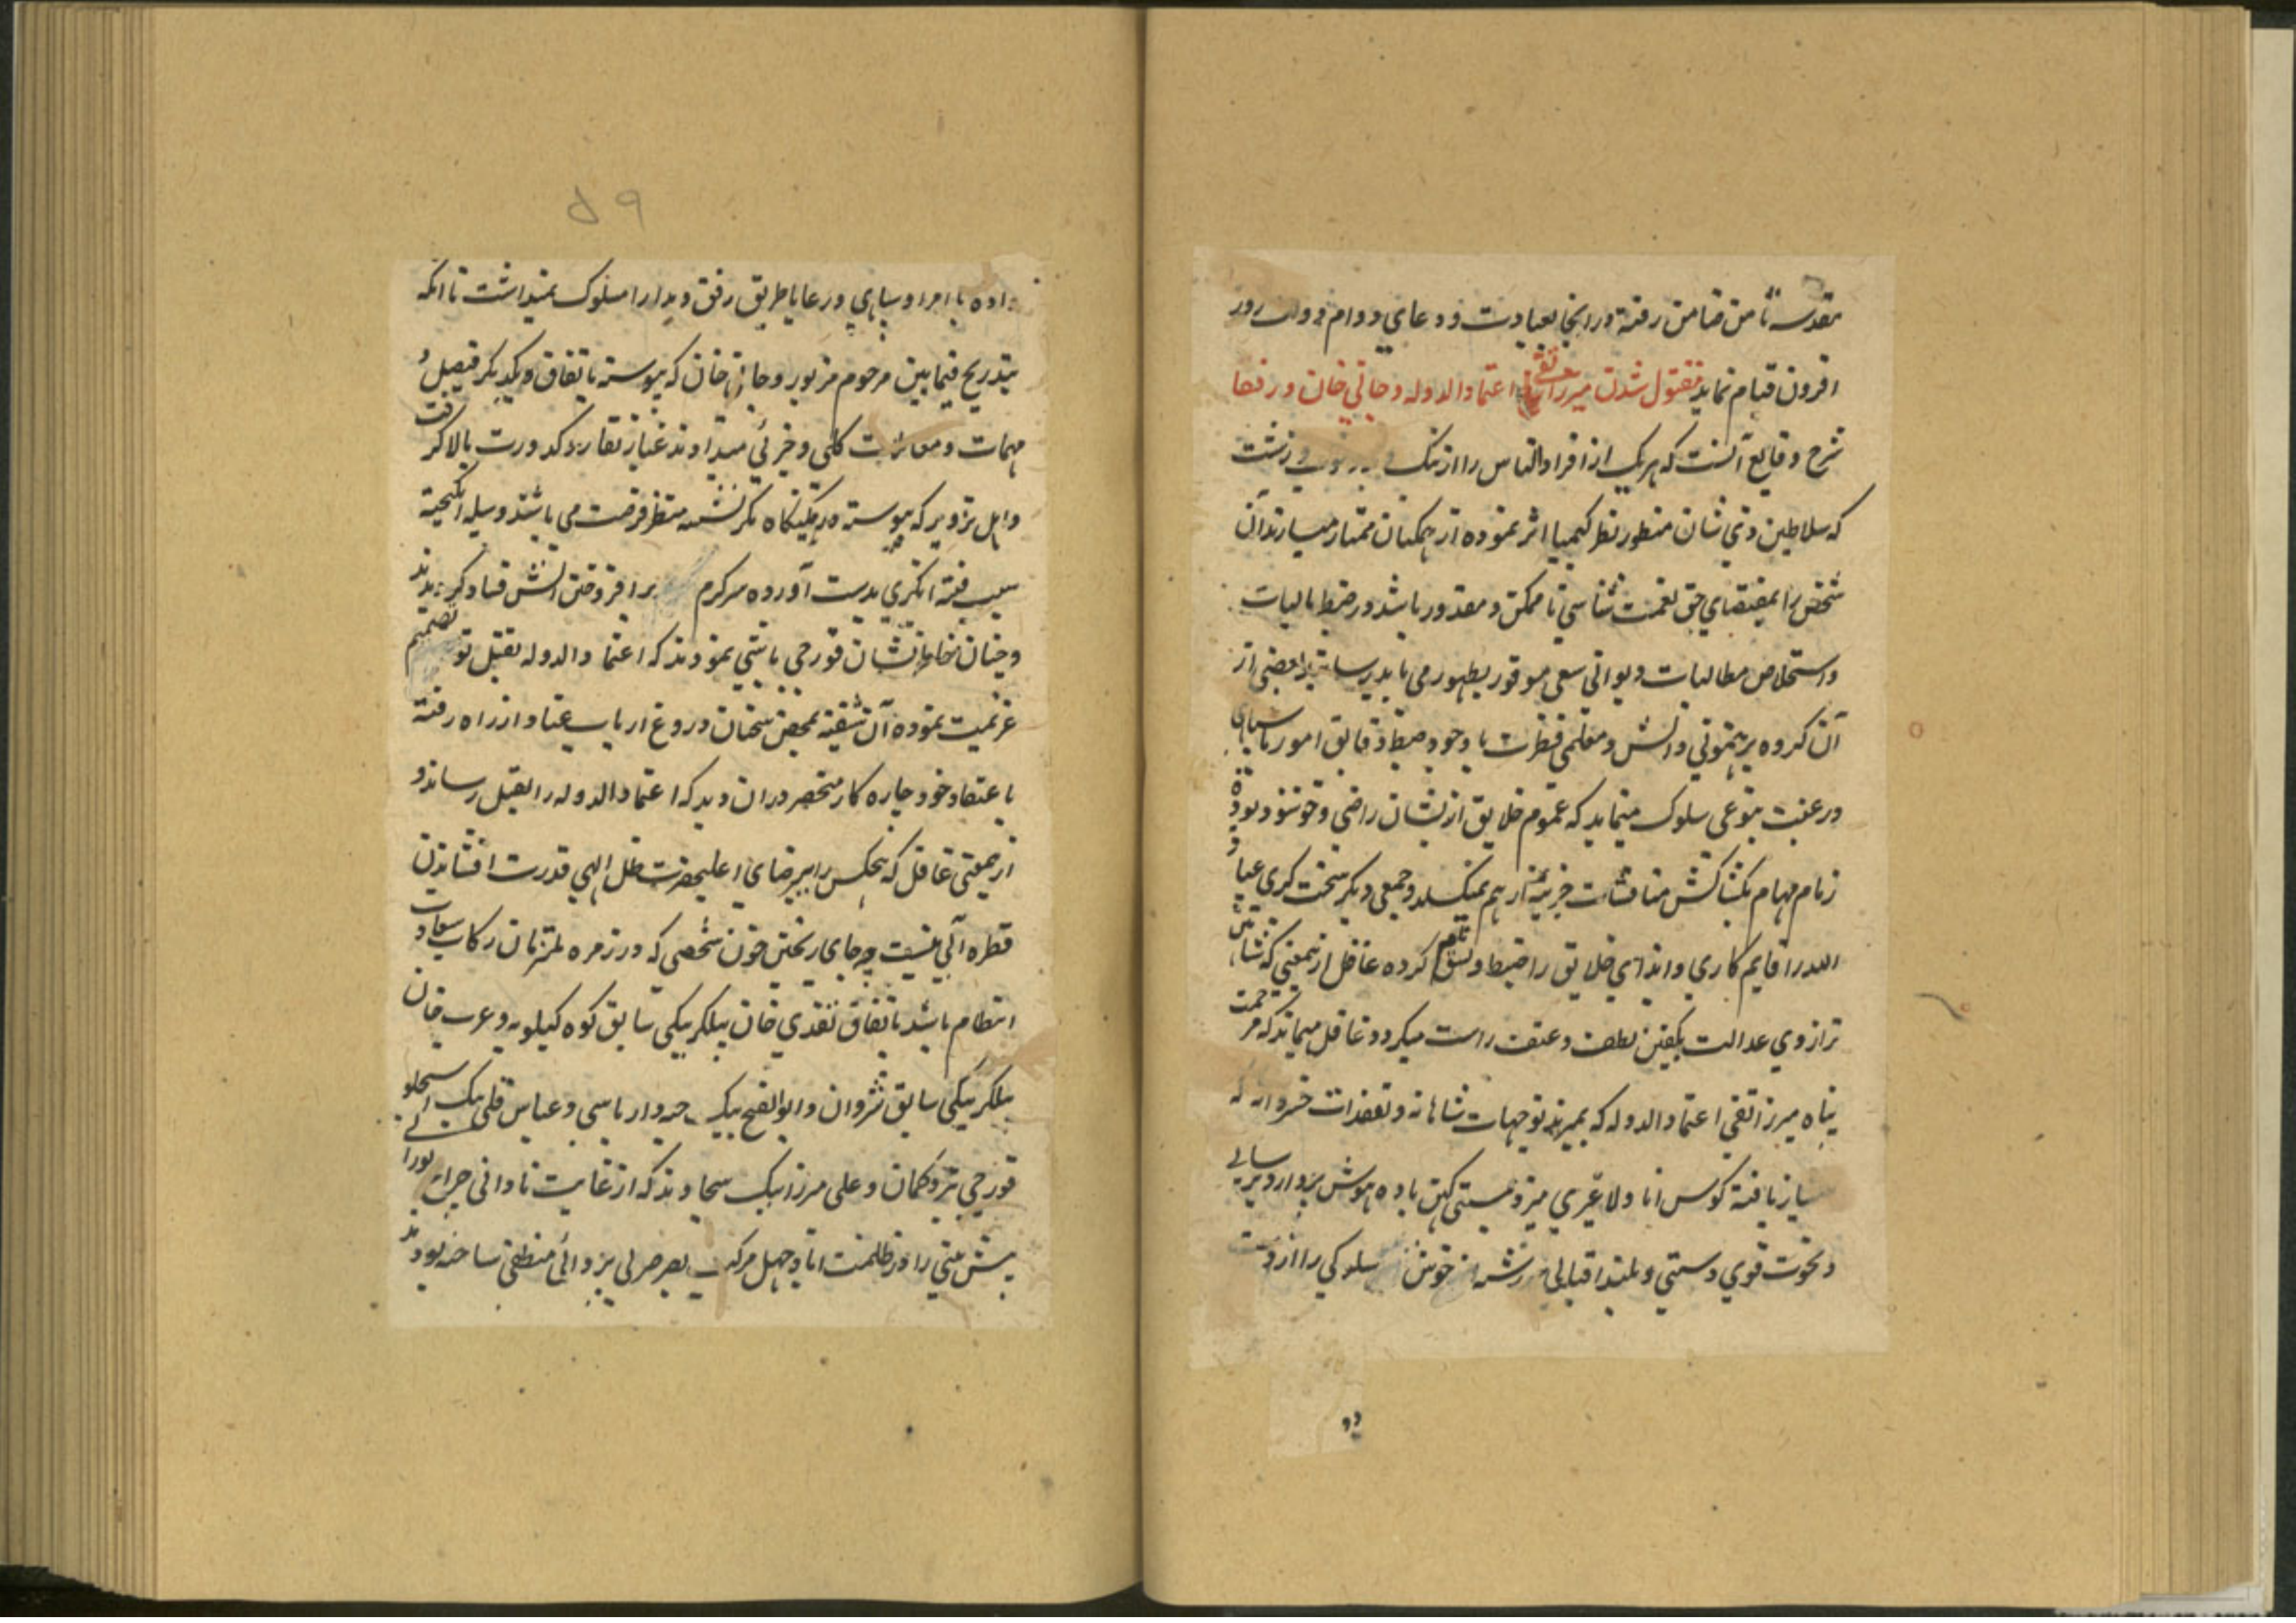 مقدسه ثامن ضامن رفته در انجا بعبادت و دعای دوام دولت روز
افزون قیام نماید مقتول شدن میرزا تقی اعتماد الدوله و جانی خان و رفقا
شرح وقایع آنست که هر یک از افراد الناس را از نیک و بد و خوب و زشت
که سلاطین ذی شان منظور نظر کیمیا اثر نموده از همکنان ممتاز میسازند آن
شخص را بمقتضای حق نعمت شناسی تا ممکن و مقدور باشد در ضبط مالیات
و استخلاص مطالبات دیوانی سعی موفور بظهور می باید رسانید بعضی از
آن کروه برهنمونی دانش و معلمی فطرت با وجود ضبط دقایق امور با سپاهی
و رعیت بنوعی سلوک مینماید که عموم خلایق از ایشان راضی و خوشنود بوده
زمام مهام بکشاکش مناقشات جزییه از هم نمیکسلد و جمعی دیکر سخت کیری عباد
الله را قایم کاری و ایذای خلایق را ضبط و نسق نام کرده غافل ازینمعنی که شاهین
ترازوی عدالت بکفتین لطف و عنف راست میکردد و غافل میماند که مرحمت
پناه میرزا تقی اعتماد الدوله که بمیزید توجهات شاهانه و تفقدات خسروانه که
یافته کوس انا و لا غیری میزد مستی کهن باده هوش پرداز دیرسالی
و نخوت قوی دستی و بلند اقبالی خوش سلوکی را از دست
دو
۵۹
داده با امرا و سپاهی و رعایا طریق رفق و مدارا مسلوک نمیداشت تا انکه
بتدریج فیمابین مرحوم مزبور و جانی خان که پیوسته باتفاق یکدیکر فیصل
مهمات و معاملات کلی و جزئی میدادند غبار نقار و کدورت بالا کرفت
و اهل تزویر که پیوسته در کمینکاه مکر نشسته منتظر فرصت می باشند وسیله انکیخته
سبب فتنه انکیزی بدست آورده سرکرم برافروختن آتش فساد کردیدند
و چنان خاطرنشان قورچی باشی نمودند که اعتماد الدوله بقتل تو تصمیم
عزیمت نموده آن شیفته بمحض سخنان دروغ ارباب عناد از راه رفته
باعتقاد خود چاره کار منحصر دران دید که اعتماد الدوله را بقتل رساند و
ازینمعنی غافل که هیچکس را بیرضای اعلیحضرت ظل الهی قدرت افشاندن
قطره آبی نیست چه جای ریختن خون شخصی که در زمره ملتزمان رکاب سعادت
انتظام باشد باتفاق نقدی خان بیکلربیکی سابق کوه کیلویه و عرب خان
بیکلربیکی سابق شروان و ابوالفتح بیک جبه دار باشی و عباس قلی بیک استجلو
قورچی تیر و کمان و علی میرزا بیک که از غایت نادانی چراغ نورانی
پیش بینی را در ظلمت اباد جهل مرکب بصرصر بی پروائی منطفی ساخته بودند